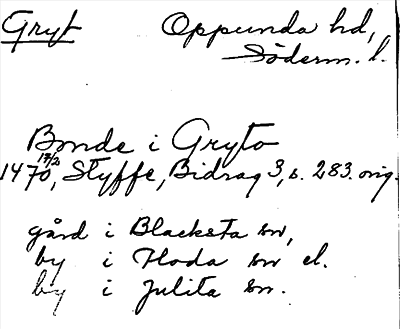 Gryt Oppunda hd,
Söderm. l.
Bonde i Gryto
1470 13/2, Styffe, Bidrag 3, s. 283. orig.
gård i Blacksta sn,
by i Floda sn el.
by i Julita sn.